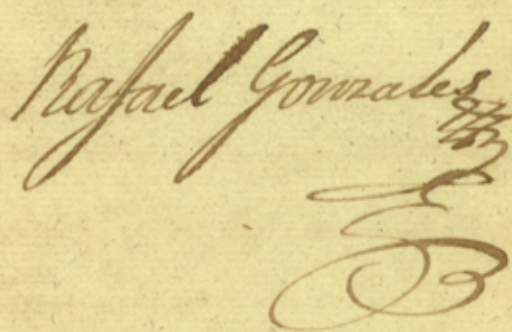 Rafael Gonzales